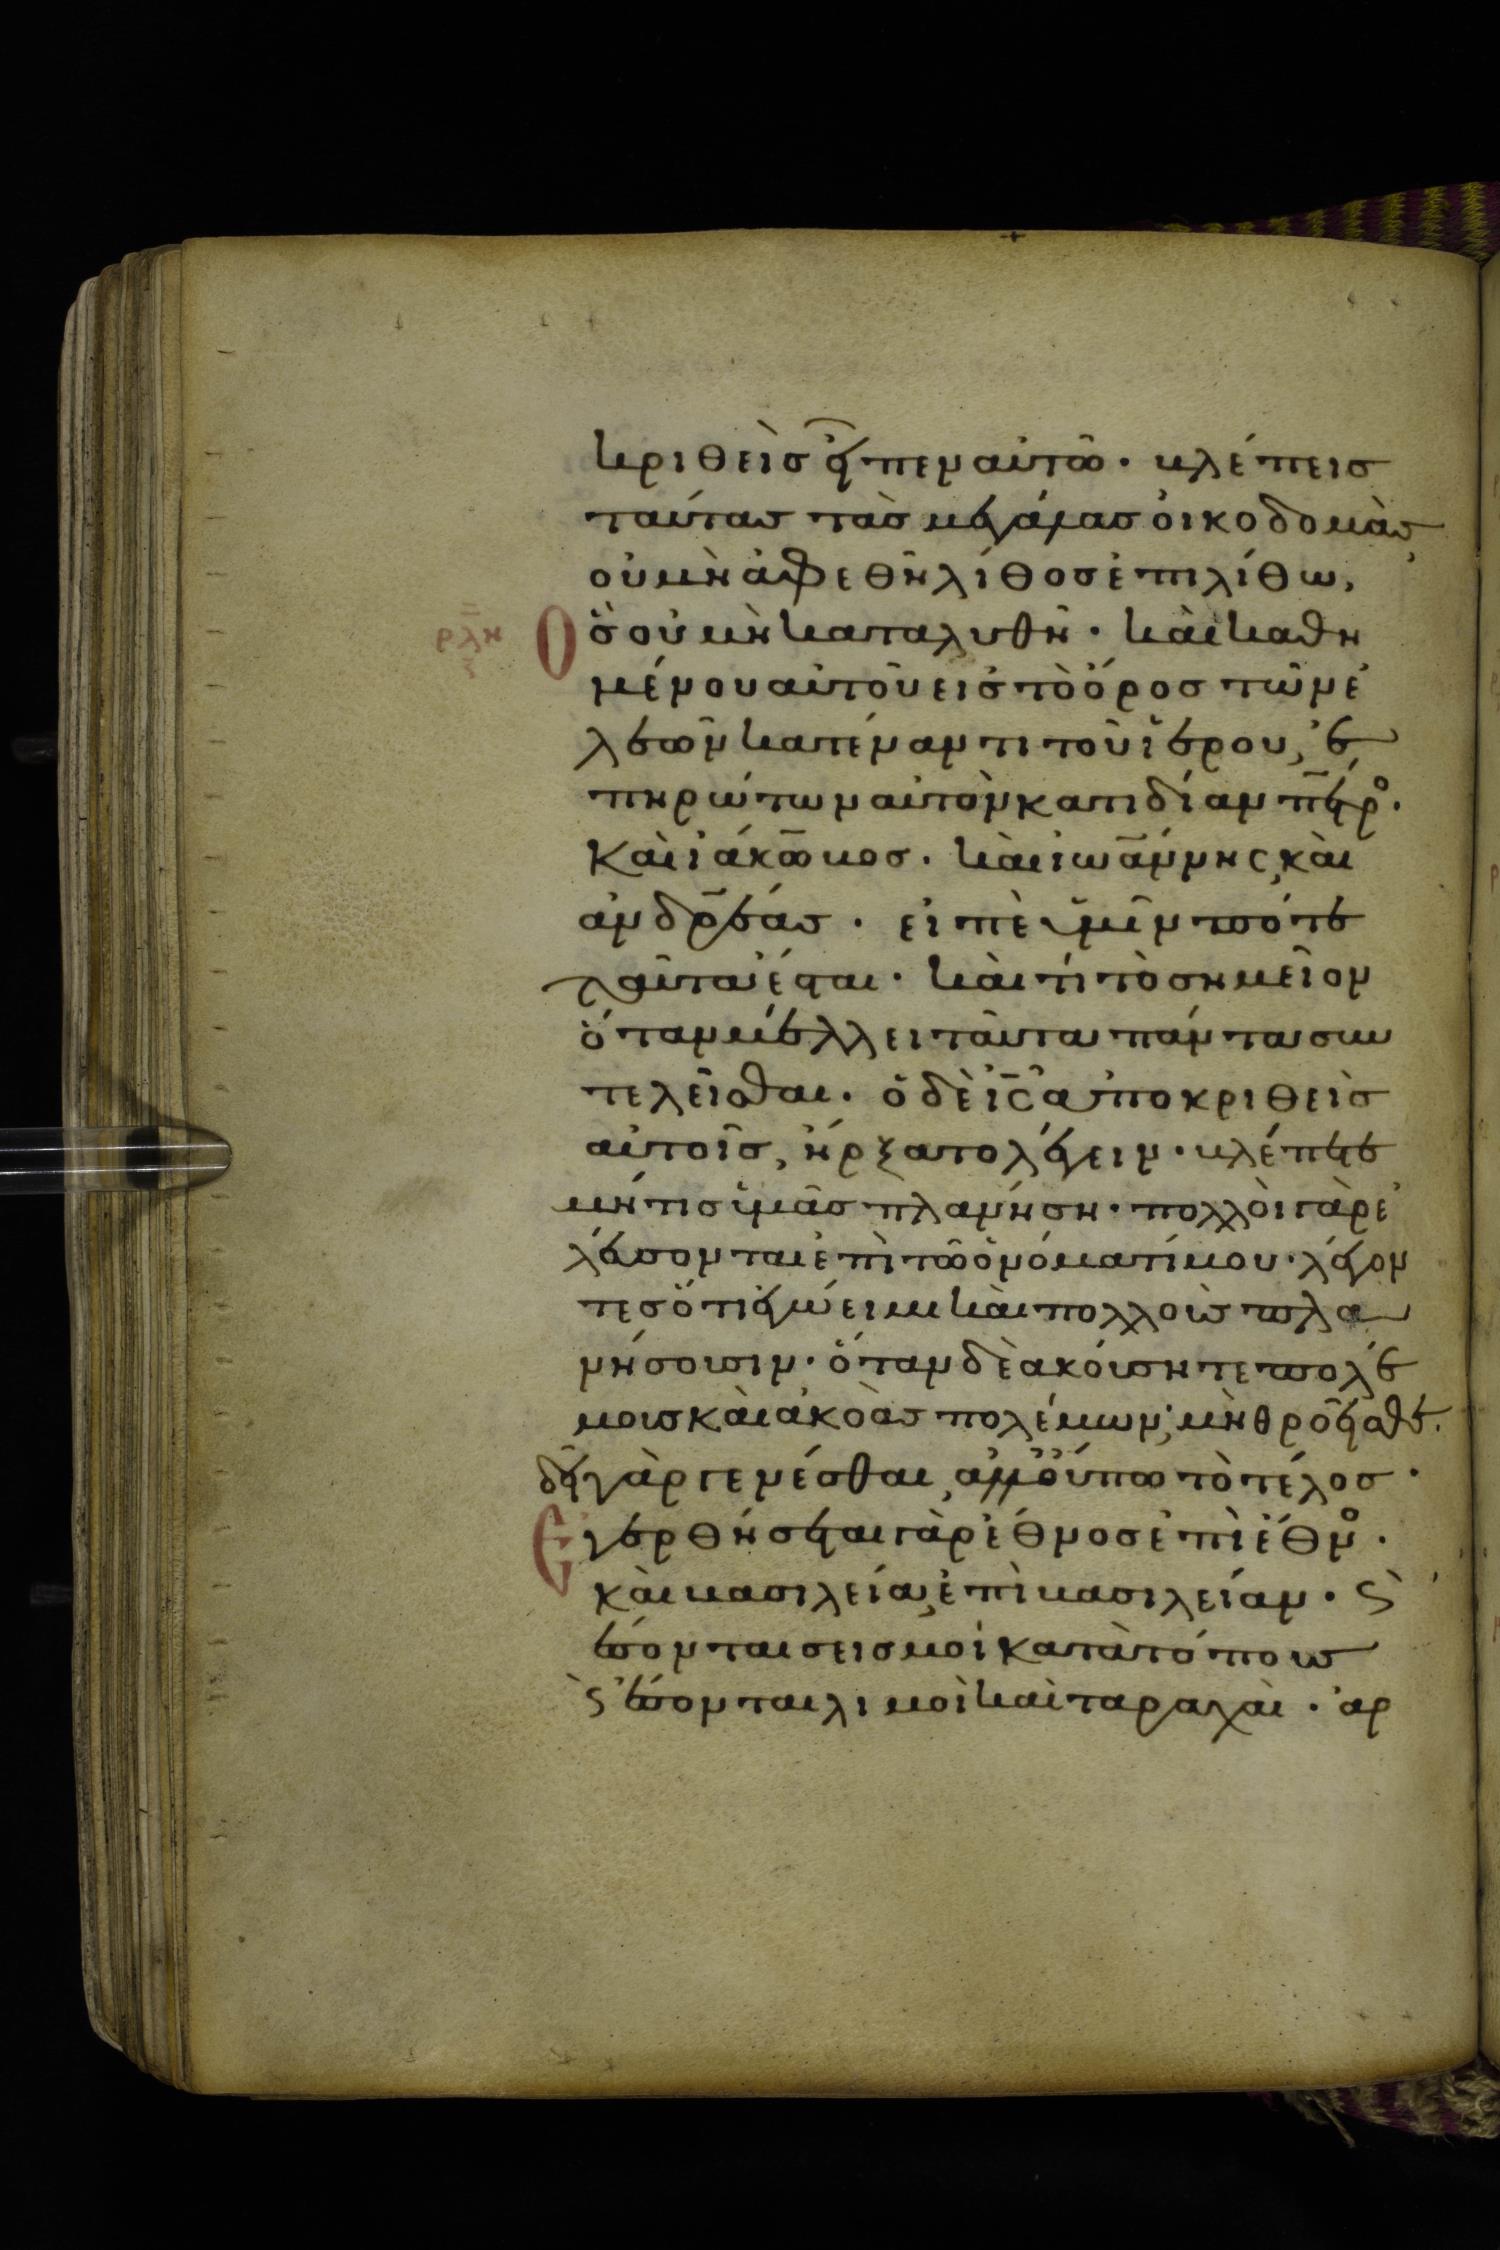 κριθεὶσ εἶπεν αὐτῶ· βλέπεισ
ταύτασ τὰσ μεγάλασ οἰκοδομὰσ,
οὐ μὴ ἀφεθῆ λίθοσ ἐπι λίθω,
ρλη Ὃσ οὐ μὴ καταλυθῆ· καὶ καθη
μένου αὐτοῦ εισ τὸ ὄροσ τῶν ἐ
λεῶν κατέναντι τοῦ ἱεροῦ, ἐ
πηρώτων αὐτὸν κατιδίαν πέτρο·
καὶ ἰάκωβοσ· καὶ ἰωάννης, καὶ
ἀνδρέασ· εἰπὲ ἡμῖν πότε
ταῦτα ἔσται· καὶ τί τὸ σημεῖον
ὅταν μέλλει ταῦτα πάντα συν
τελεῖσθαι· ὁ δὲ ις ἀποκριθεὶσ
αὐτοῖσ, ἤρξατο λέγειν· βλέπετε
μή τισ ὑμᾶσ πλανήση· πολλοὶ γὰρ ἐ
λεύσονται ἐπὶ τῶ ὀνόματί μου· λέγον
τεσ ὅτι ἐγώ ειμι καὶ πολλοὺσ πλα
νήσουσιν· ὅταν δὲ ακούσητε πολέ
μουσ καὶ ἀκοὰσ πολέμων, μὴ θροεῖσθε·
δεῖ γὰρ γενέσθαι, ἀλλ' οὔπω τὸ τέλοσ·
Εγερθήσεται γὰρ ἔθνοσ ἐπὶ ἔθνο·
καὶ βασιλεία, ἐπὶ βασιλείαν· ϛ
ἔσονται σεισμοί κατὰ τόπουσ
ϛ ἔσονται λιμοὶ καὶ ταραχαὶ· ἀρ